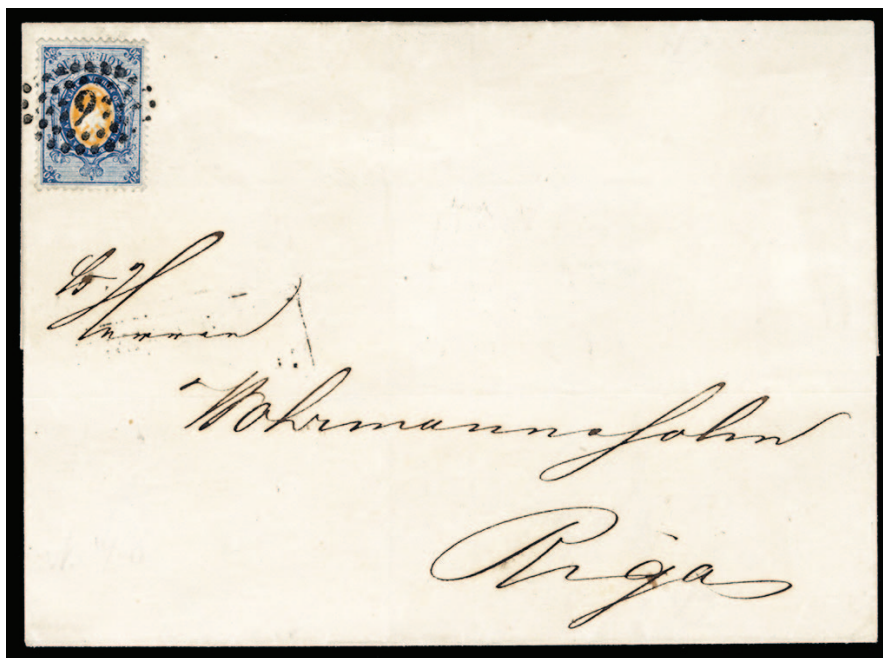 9
Herren
Wöhrmann & Sohn
Riga